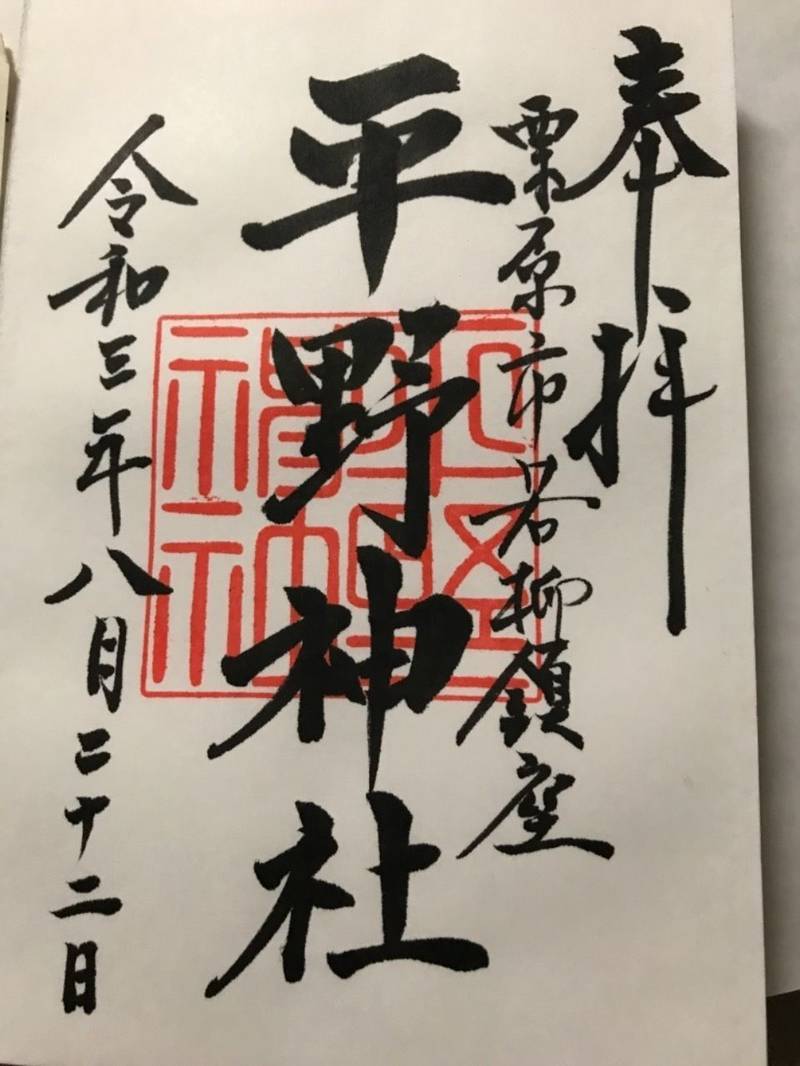 奉拝
栗原市若柳鎮座
平野神社
令和三年八月二十二日